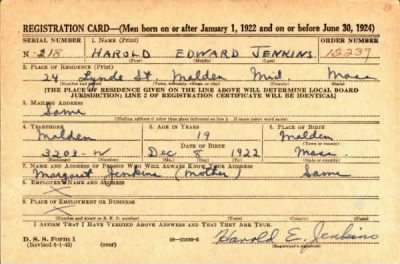 REGISTRATION CARD—(Men born on or after January 1, 1922 and on or before June 30, 1924)
SERIAL NUMBER 1. NAME (Print) ORDER NUMBER
N-218 HAROLD EDWARD JENKINS 12237
(First) (Middle) (Last)
2. PLACE OF RESIDENCE (Print)
24 Lynde St Malden Mid Mass
(Number and street) (Town, township, village, or city) (County) (State)
[THE PLACE OF RESIDENCE GIVEN ON THE LINE ABOVE WILL DETERMINE LOCAL BOARD
JURISDICTION; LINE 2 OF REGISTRATION CERTIFICATE WILL BE IDENTICAL]
3. MAILING ADDRESS
Same
[Mailing address if other than place indicated on line 2. If same insert word same]
4. TELEPHONE 5. AGE IN YEARS 6. PLACE OF BIRTH
Malden 19 Malden
DATE OF BIRTH (Town or county)
3203-W Dec 8 1922 Mass
(Exchange) (Number) (Mo.) (Day) (Yr.) (State or country)
7. NAME AND ADDRESS OF PERSON WHO WILL ALWAYS KNOW YOUR ADDRESS
Margaret Jenkins (Mother) Same
8. EMPLOYER'S NAME AND ADDRESS
9. PLACE OF EMPLOYMENT OR BUSINESS
(Number and street or R. F. D. number) (Town) (County) (State)
I AFFIRM THAT I HAVE VERIFIED ABOVE ANSWERS AND THAT THEY ARE TRUE.
D. S. S. Form 1
(Revised 6-1-42) (over) Harold E. Jenkins
(Registrant's signature)